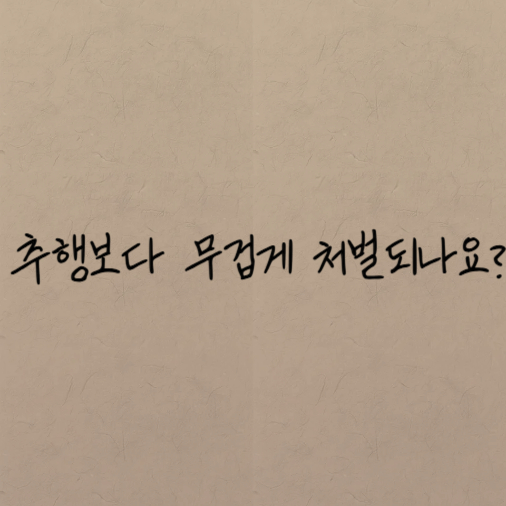 추행보다 무겁게 처벌되나요?